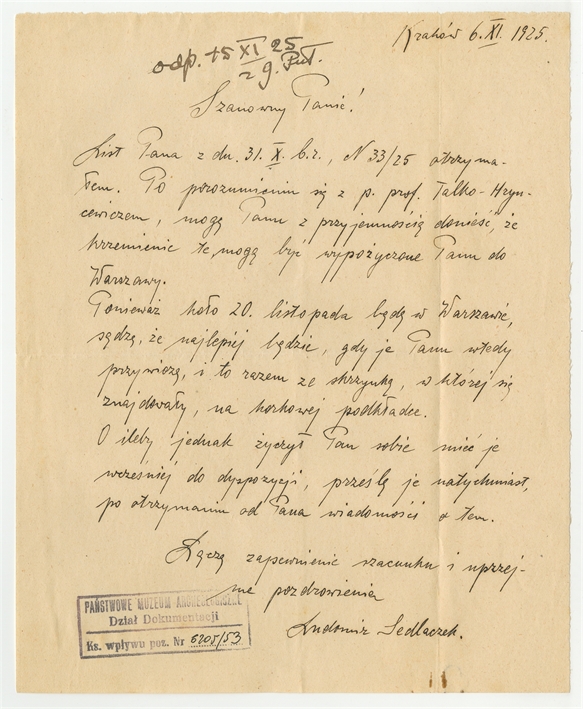 Kraków 6. XI. 1925.
odp. 15 XI 25
Szanowny Panie!
List Pana z dn. 31. X. b.r., N 33/25 otrzyma-
łem. Po porozumieniu się z p. prof. Talko-Hryn-
cewiczem, mogę Panu z przyjemnością donieść, że
krzemienie te, mogą być wypożyczone Panu do
Warszawy.
Ponieważ koło 20. listopada będę w Warszawie,
sądzę, że najlepiej będzie, gdy je Panu wtedy
przywiozę, i to razem ze skrzynką, w której się
znajdowały, na korkowej podkładce.
O ileby jednak życzył Pan sobie mieć je
wcześniej do dyspozycji, prześlę je natychmiast,
po otrzymaniu od Pana wiadomości o tem.
Łączę zapewnienie szacunku i uprzej-
me pozdrowienia
Ludomir Sedlaczek.
PAŃSTWOWE MUZEUM ARCHEOLOGICZNE
Dział Dokumentacji
Ks. wpływu poz. Nr 6205/53